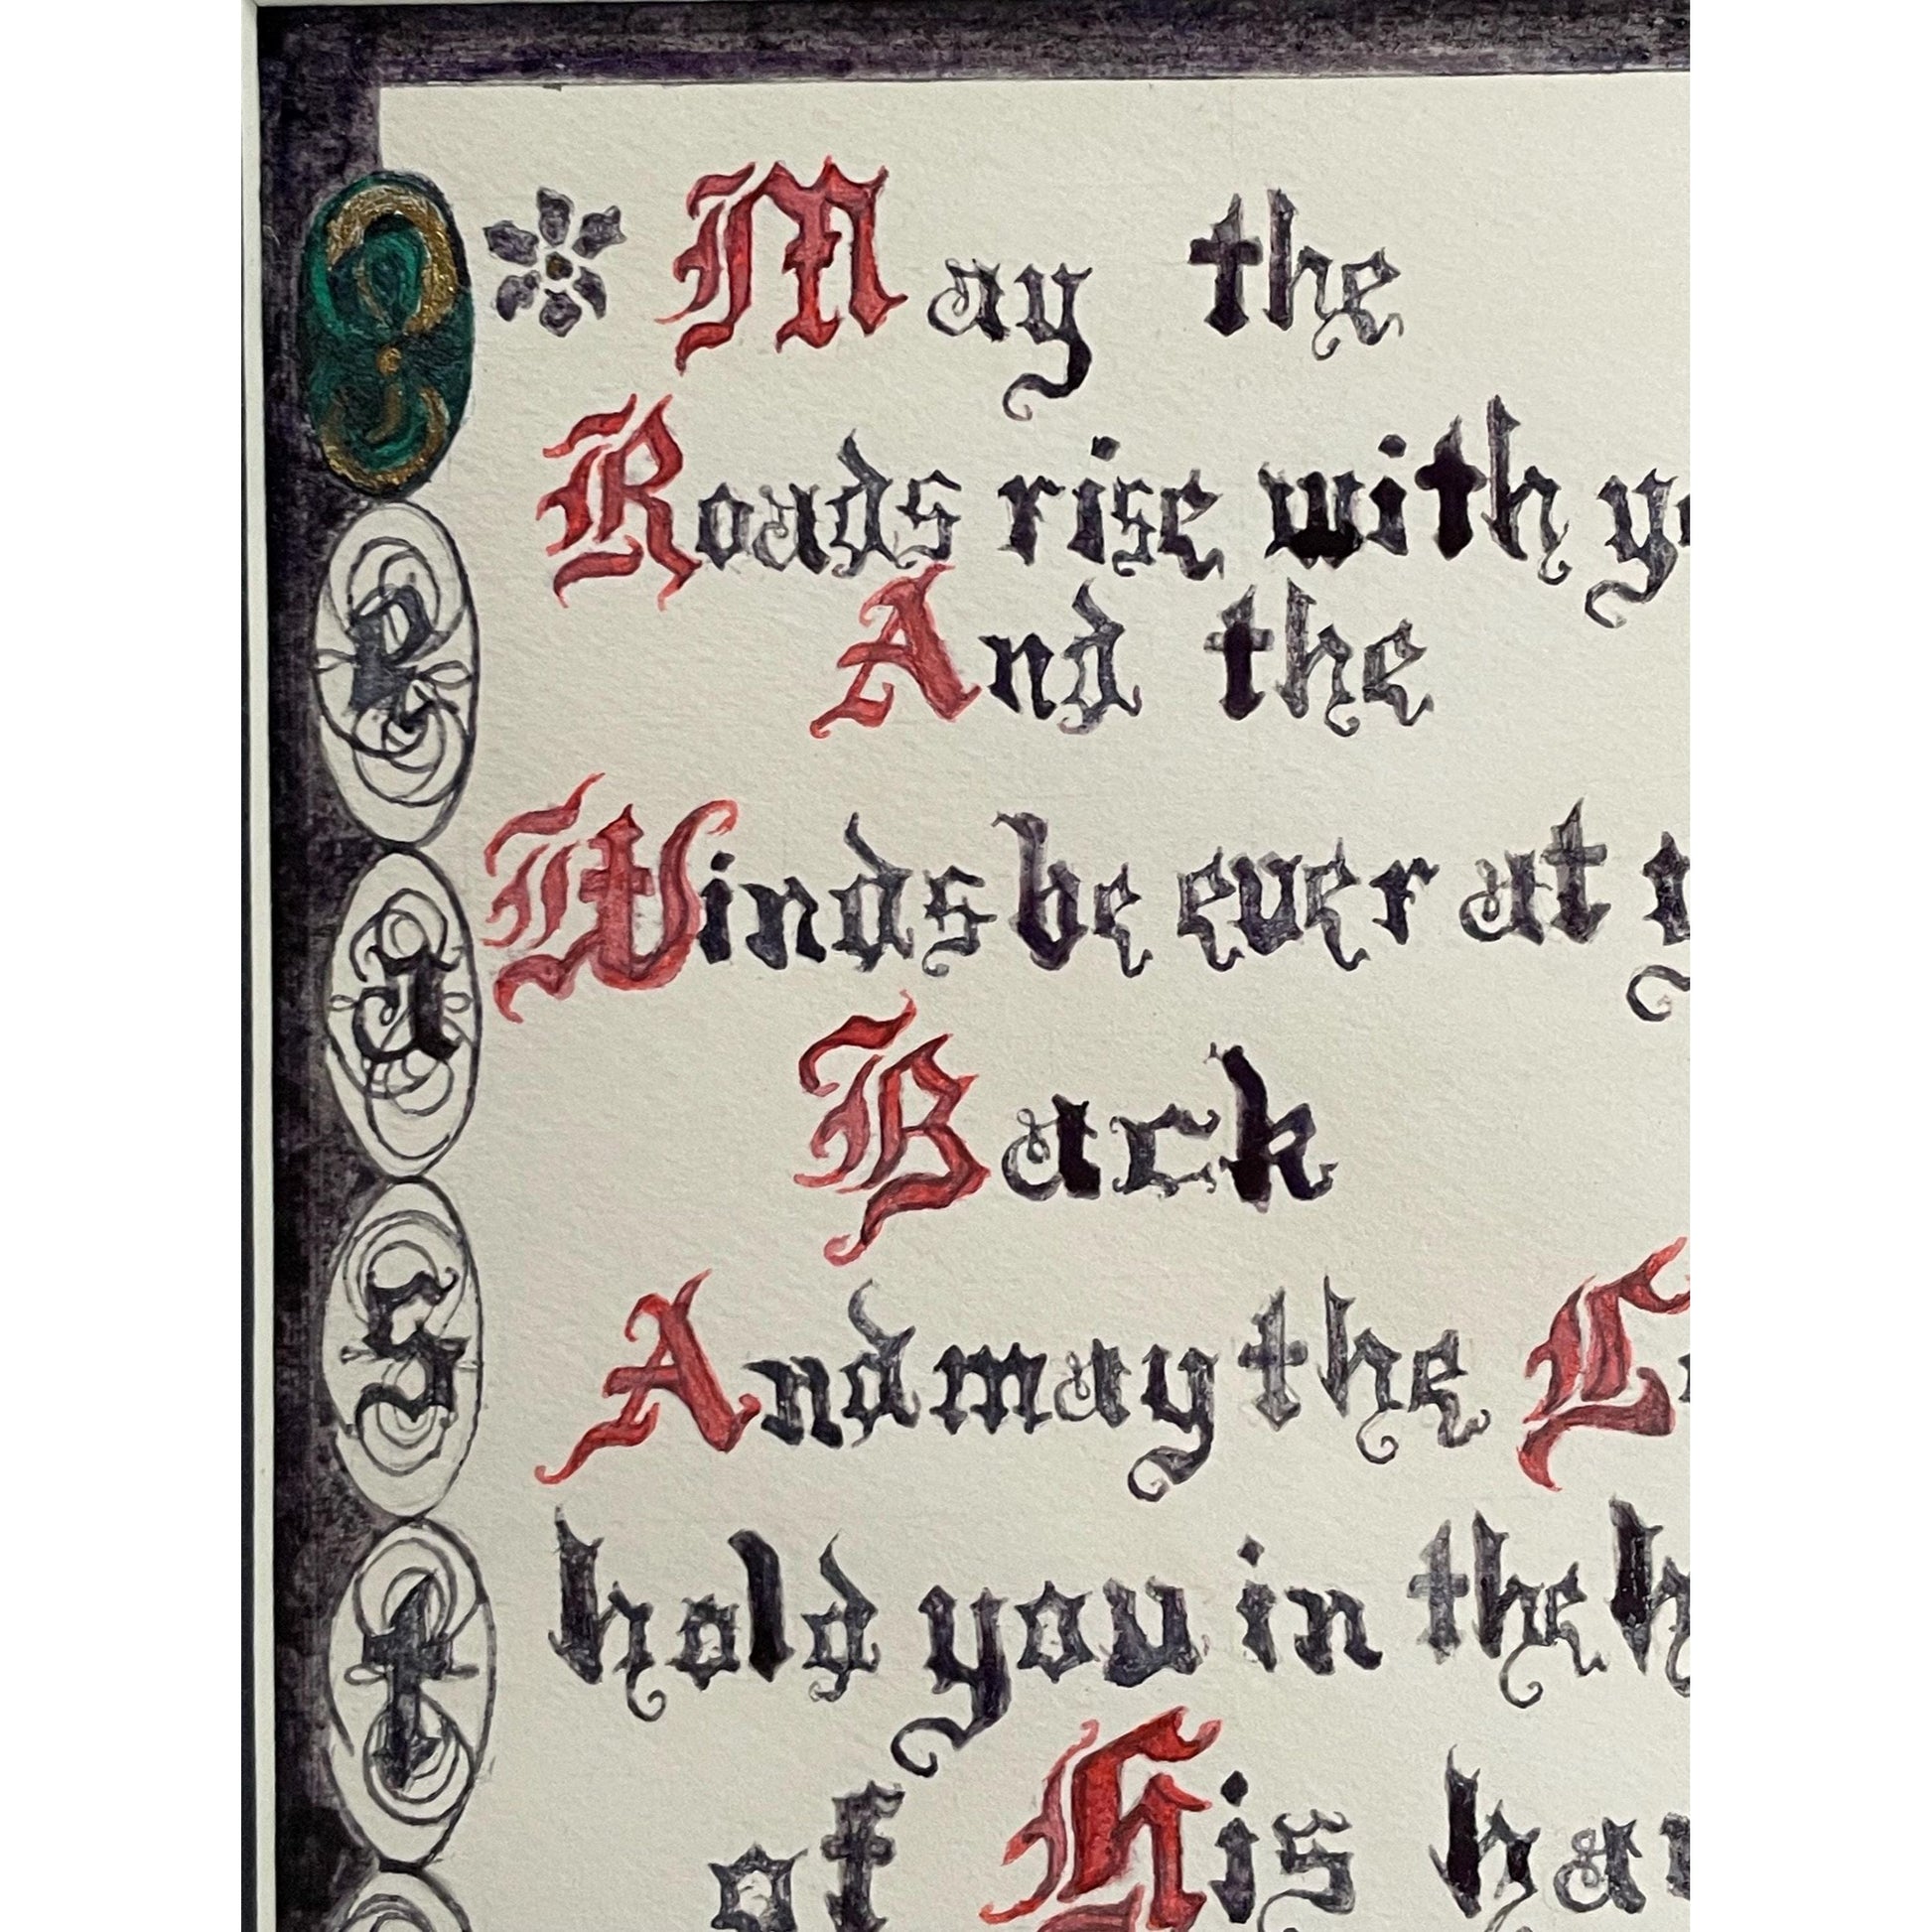 May the
Roads rise with yo
And the
Winds be ever at y
Back
And may the L
hold you in the h
of His han
R
I
S
t